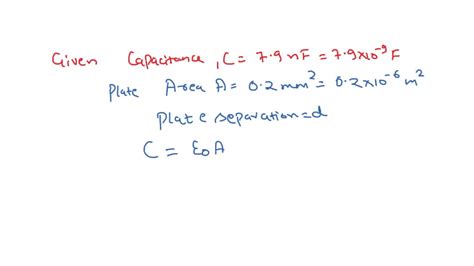 Given Capacitance, C = 7.9 nF = 7.9×10⁻⁹ F
Plate Area A = 0.2 mm² = 0.2×10⁻⁶ m²
Plate separation = d
C = ε₀A